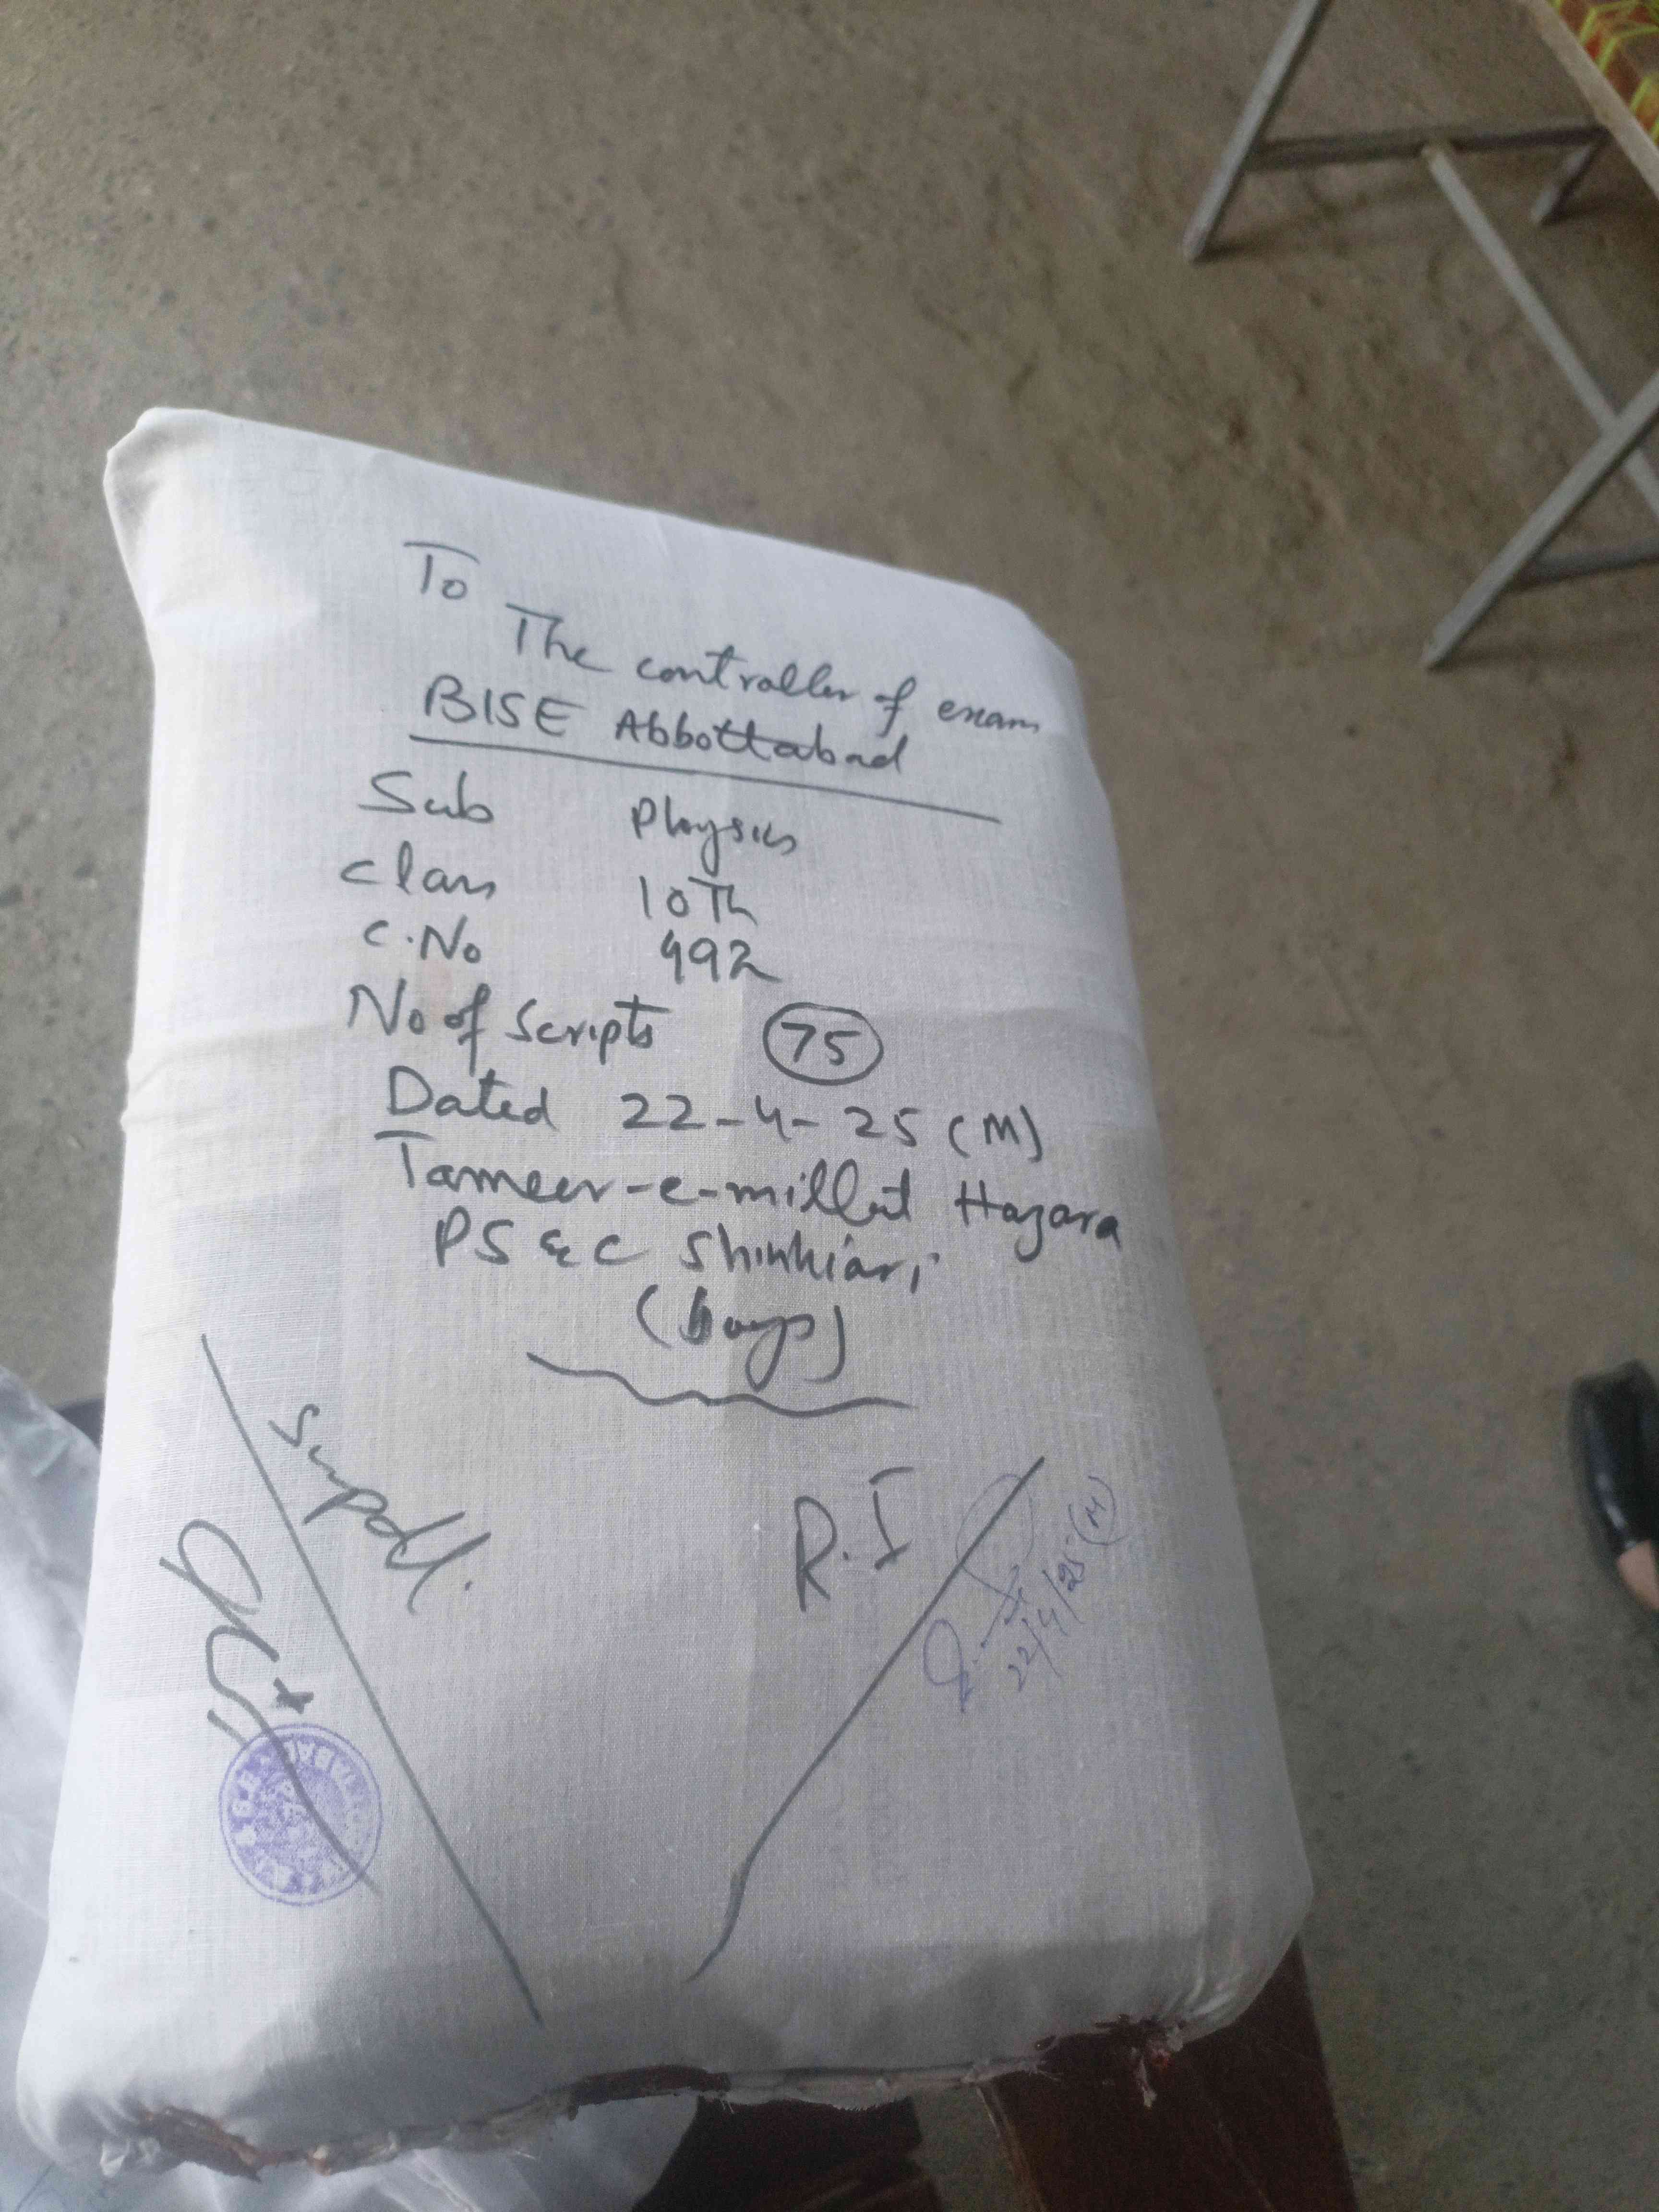 To
The controller of exam
BISE Abbottabad
Sub Physics
Class 10Th
C.No 492
No of Scripts 75
Dated 22-4-25 (M)
Tameer-e-millat Hazara
PS & C Shinkiari
(boys)
Supdt.
R.I
22/4/25 (M)